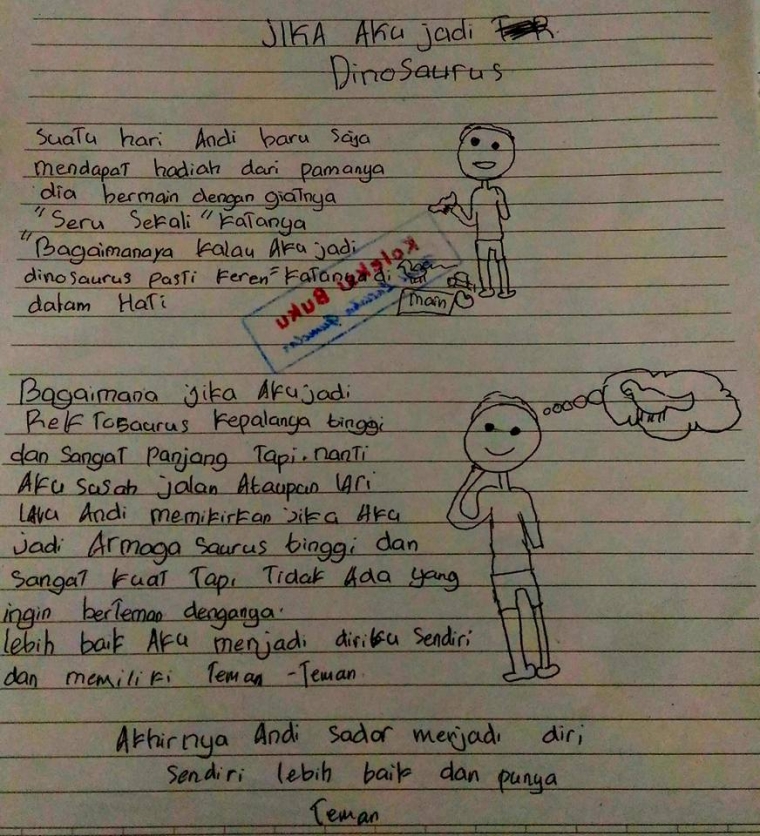 JIKA AKu jadi
DinoSaurus
Suatu hari Andi baru Saja
mendapat hadiah dari pamanya
dia bermain dengan giatnya
"Seru Sekali" Katanya
"Bagaimanaya Kalau Aku jadi
dinosaurus pasti Keren" Katanya di
dalam Hati
Main
Koleksi Buku
Bagaimana jika Aku jadi
RekTosaurus Kepalanya tinggi
dan Sangat Panjang Tapi. nanti
Aku Susah jalan Ataupun lari
Lalu Andi memikirkan jika Aku
jadi Armaga Saurus tinggi dan
Sangat Kuat Tapi Tidak Ada yang
ingin berTeman denganya.
lebih baik Aku menjadi diriku Sendiri
dan memiliki Teman -Teman.
Akhirnya Andi Sador menjadi diri
Sendiri lebih baik dan punya
Teman